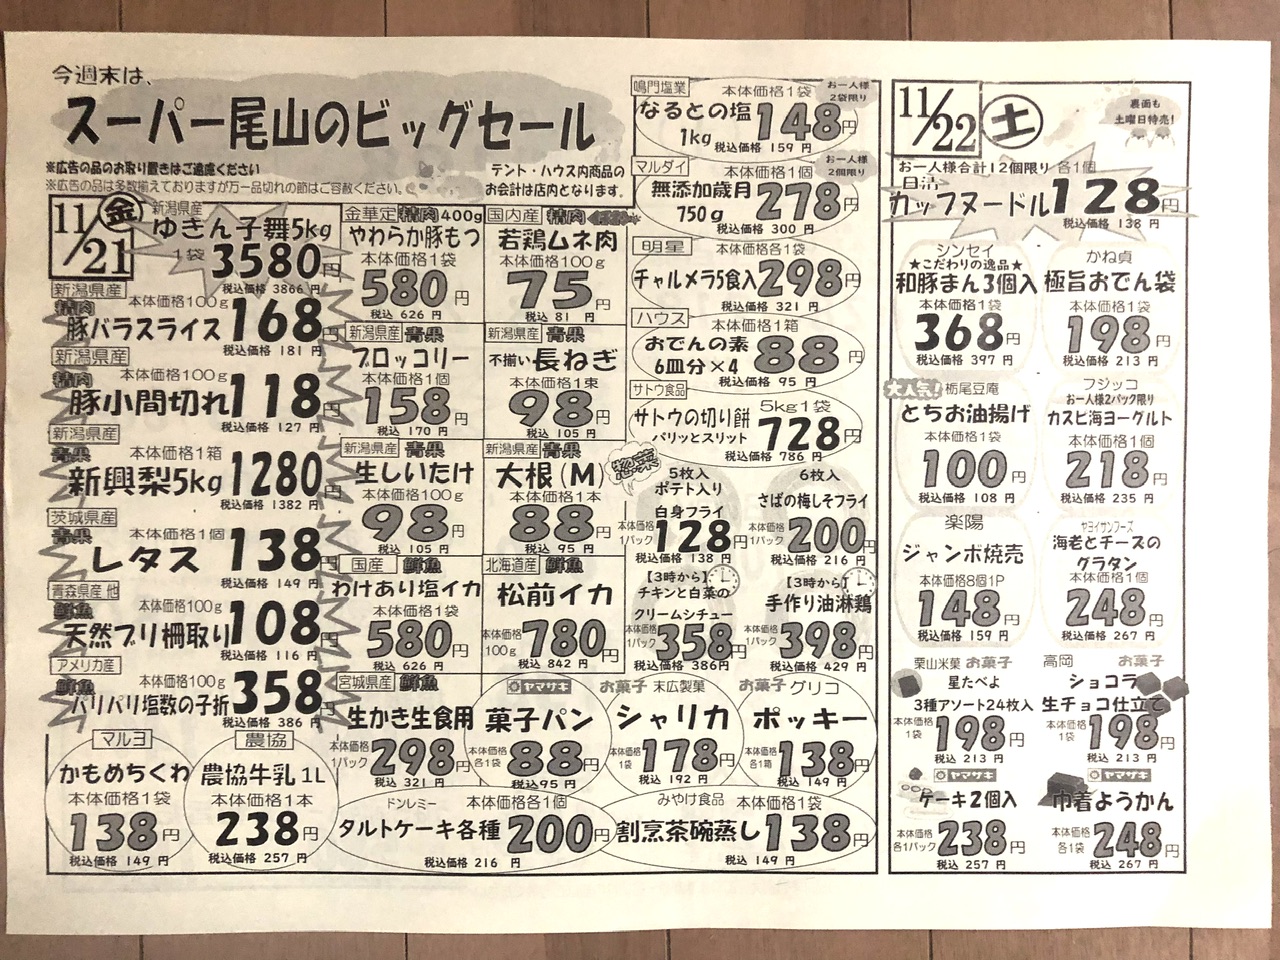 今週末は、
スーパー尾山のビッグセール
※広告の品のお取り置きはご遠慮ください
※広告の品は多数揃えておりますが万一品切れの節はご容赦ください。
テント・ハウス内商品の
お会計は店内となります。
11/21
金
新潟県産
ゆきん子舞5kg
1袋 3580円
税込価格 3866 円
新潟県産
精肉
本体価格100g
豚バラスライス 168円
税込価格 181 円
新潟県産
精肉
本体価格100g
豚小間切れ 118円
税込価格 127 円
新潟県産
青果
本体価格1箱
新興梨5kg 1280円
税込価格 1382 円
茨城県産
青果
本体価格1個
レタス 138円
税込価格 149 円
青森県産 他
鮮魚
本体価格100g
天然ブリ柵取り 108円
税込価格 116 円
アメリカ産
鮮魚
本体価格100g
パリパリ塩数の子折 358円
税込価格 386 円
金華定 精肉 400g
やわらか豚もつ
本体価格1袋
580円
税込 626 円
国内産 精肉
若鶏ムネ肉
本体価格100g
75円
税込 81 円
新潟県産 青果
ブロッコリー
本体価格1個
158円
税込 170 円
新潟県産 青果
不揃い 長ねぎ
本体価格1束
98円
税込 105 円
新潟県産 青果
生しいたけ
本体価格100g
98円
税込 105 円
新潟県産 青果
大根(M)
本体価格1本
88円
税込 95 円
国産 鮮魚
わけあり塩イカ
本体価格1袋
580円
税込 626 円
北海道産 鮮魚
松前イカ
本体価格100g 780円
税込 842 円
宮城県産 鮮魚
生かき生食用
本体価格1パック 298円
税込 321 円
ヤマザキ
菓子パン
本体価格各1袋 88円
税込95 円
お菓子 末広製菓
シャリカ
本体価格1袋 178円
税込 192 円
お菓子 グリコ
ポッキー
本体価格各1箱 138円
税込 149 円
マルヨ
かもめちくわ
本体価格1袋
138円
税込価格 149 円
農協
農協牛乳 1L
本体価格1本
238円
税込価格 257 円
ドンレミー 本体価格各1個
タルトケーキ各種 200円
税込価格 216 円
みやけ食品 本体価格1袋
割烹茶碗蒸し 138円
税込 149 円
鳴門塩業 本体価格1袋
お一人様
2袋限り
なるとの塩
1kg 148円
税込価格 159 円
マルダイ 本体価格1個
お一人様
2個限り
無添加歳月
750g 278円
税込価格 300 円
明星 本体価格各1袋
チャルメラ5食入 298円
税込価格 321 円
ハウス 本体価格1箱
おでんの素
6皿分×4 88円
税込価格 95 円
サトウ食品
サトウの切り餅 5kg1袋
パリッとスリット 728円
税込価格 786 円
惣菜
5枚入
ポテト入り
白身フライ
本体価格1パック 128円
税込価格 138 円
6枚入
さばの梅しそフライ
本体価格1パック 200円
税込価格 216 円
【3時から】
チキンと白菜の
クリームシチュー
本体価格1パック 358円
税込価格 386円
【3時から】
手作り油淋鶏
本体価格1パック 398円
税込価格 429 円
11/22
土
裏面も
土曜日特売!
お一人様合計12個限り 各1個
日清
カップヌードル 128円
税込価格 138 円
シンセイ
★こだわりの逸品★
和豚まん3個入
本体価格1袋
368円
税込価格 397 円
かね貞
極旨おでん袋
本体価格1袋
198円
税込価格 213 円
大人気!
栃尾豆庵
とちお油揚げ
本体価格1袋
100円
税込価格 108 円
フジッコ
お一人様2パック限り
カスピ海ヨーグルト
本体価格1個
218円
税込価格 235 円
楽陽
ジャンボ焼売
本体価格8個1P
148円
税込価格 159 円
ヤヨイサンフーズ
海老とチーズの
グラタン
本体価格1個
248円
税込価格 267 円
栗山米菓 お菓子
星たべよ
3種アソート24枚入
本体価格1袋 198円
税込 213 円
高岡 お菓子
ショコラ
生チョコ仕立て
本体価格1袋 198円
税込 213 円
ヤマザキ
ケーキ2個入
本体価格各1パック 238円
税込 257 円
ヤマザキ
巾着ようかん
本体価格各1袋 248円
税込 267 円